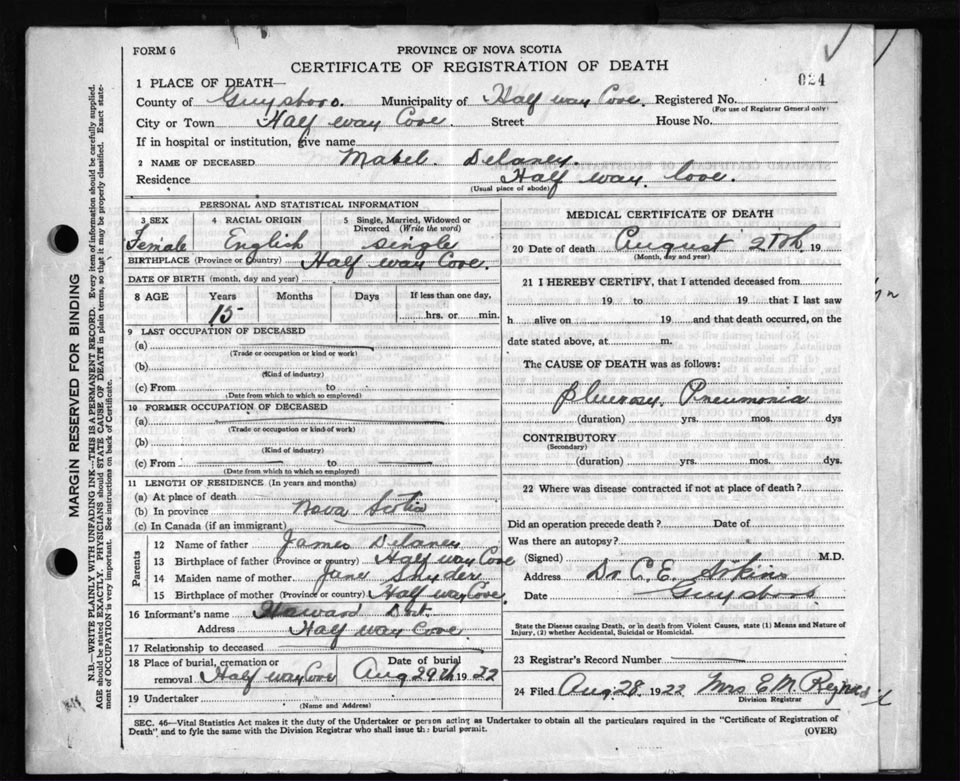 FORM 6
PROVINCE OF NOVA SCOTIA
CERTIFICATE OF REGISTRATION OF DEATH
024
1 PLACE OF DEATH—
County of Guysboro. Municipality of Half way Cove. Registered No.
(For use of Registrar General only)
City or Town Half way Cove. Street House No.
If in hospital or institution, give name
2 NAME OF DECEASED Mabel. Delaney.
Residence Half way. Cove.
(Usual place of abode)
PERSONAL AND STATISTICAL INFORMATION
3 SEX 4 RACIAL ORIGIN 5 Single, Married, Widowed or Divorced (Write the word)
Female English single
BIRTHPLACE (Province or Country) Half way Cove.
DATE OF BIRTH (month, day and year)
8 AGE Years Months Days If less than one day,
15 hrs. or min.
9 LAST OCCUPATION OF DECEASED
(a)
(Trade or occupation or kind or work)
(b)
(Kind of industry)
(c) From to
(Date from which to which so employed)
10 FORMER OCCUPATION OF DECEASED
(a)
(Trade or occupation or kind of work)
(b)
(Kind of industry)
(c) From to
(Date from which to which so employed)
11 LENGTH OF RESIDENCE (In years and months)
(a) At place of death
(b) In province Nova Scotia
(c) In Canada (if an immigrant)
Parents
12 Name of father James Delaney
13 Birthplace of father (Province or country) Half way Cove
14 Maiden name of mother Jane Snyder
15 Birthplace of mother (Province or country) Half way Cove.
16 Informant's name Howard
Address Half way Cove
17 Relationship to deceased
18 Place of burial, cremation or removal Half way Cove Date of burial Aug 29th 1922
19 Undertaker
(Name and Address)
MEDICAL CERTIFICATE OF DEATH
20 Date of death August 19
(Month, day and year)
21 I HEREBY CERTIFY, that I attended deceased from
19 to 19 that I last saw
h alive on 19 and that death occurred, on the
date stated above, at m.
The CAUSE OF DEATH was as follows:
Plurosy. Pneumonia
(duration) yrs. mos. dys
CONTRIBUTORY
(Secondary)
(duration) yrs. mos. dys.
22 Where was disease contracted if not at place of death?
Did an operation precede death? Date of
Was there an autopsy?
(Signed) M.D.
Address Dr C. E.
Date Guysboro
State the Disease causing Death, or in death from Violent Causes, state (1) Means and Nature of
Injury, (2) whether Accidental, Suicidal or Homicidal.
23 Registrar's Record Number
24 Filed Aug 28 1922 Mrs E M
Division Registrar
SEC. 46—Vital Statistics Act makes it the duty of the Undertaker or person acting as Undertaker to obtain all the particulars required in the "Certificate of Registration of
Death" and to fyle the same with the Division Registrar who shall issue the burial permit.
(OVER)
MARGIN RESERVED FOR BINDING
N.B.—WRITE PLAINLY WITH UNFADING INK—THIS IS A PERMANENT RECORD. Every item of information should be carefully supplied.
AGE should be stated EXACTLY. PHYSICIANS should STATE CAUSE OF DEATH in plain terms, so that it may be properly classified. Exact state-
ment of OCCUPATION is very important. See instructions on back of Certificate.